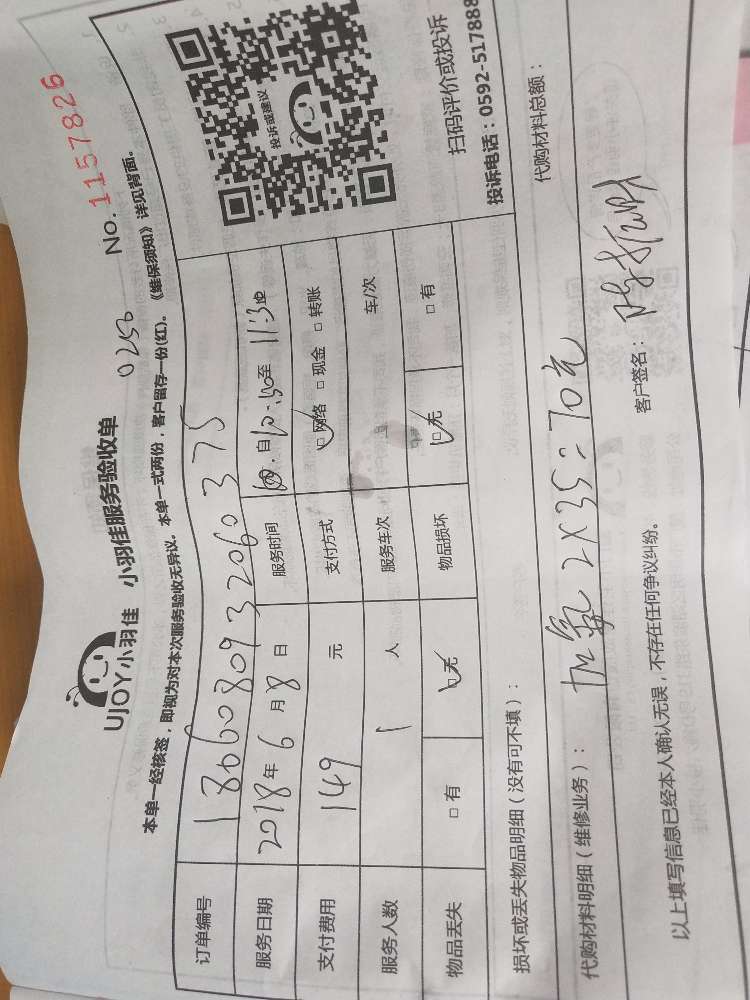 UJOY小羽佳 小羽佳服务验收单
0250
No. 1157826
本单一经核签，即视为对本次服务验收无异议。本单一式两份，客户留存一份(红)。《维保须知》详见背面。
投诉或建议
扫码评价或投诉
投诉电话：0592-517888
订单编号 1806080932060375
服务日期 2018年6月8日 服务时间 自10:30至11:30
支付费用 149 元 支付方式 □网络 □现金 □转账
服务人数 1 人 服务车次 车/次
物品丢失 □有 □无 物品损坏 □无 □有
损坏或丢失物品明细（没有可不填）：
代购材料明细（维修业务）： 加氟 2X35=70元 代购材料总额：
以上填写信息已经本人确认无误，不存在任何争议纠纷。 客户签名：